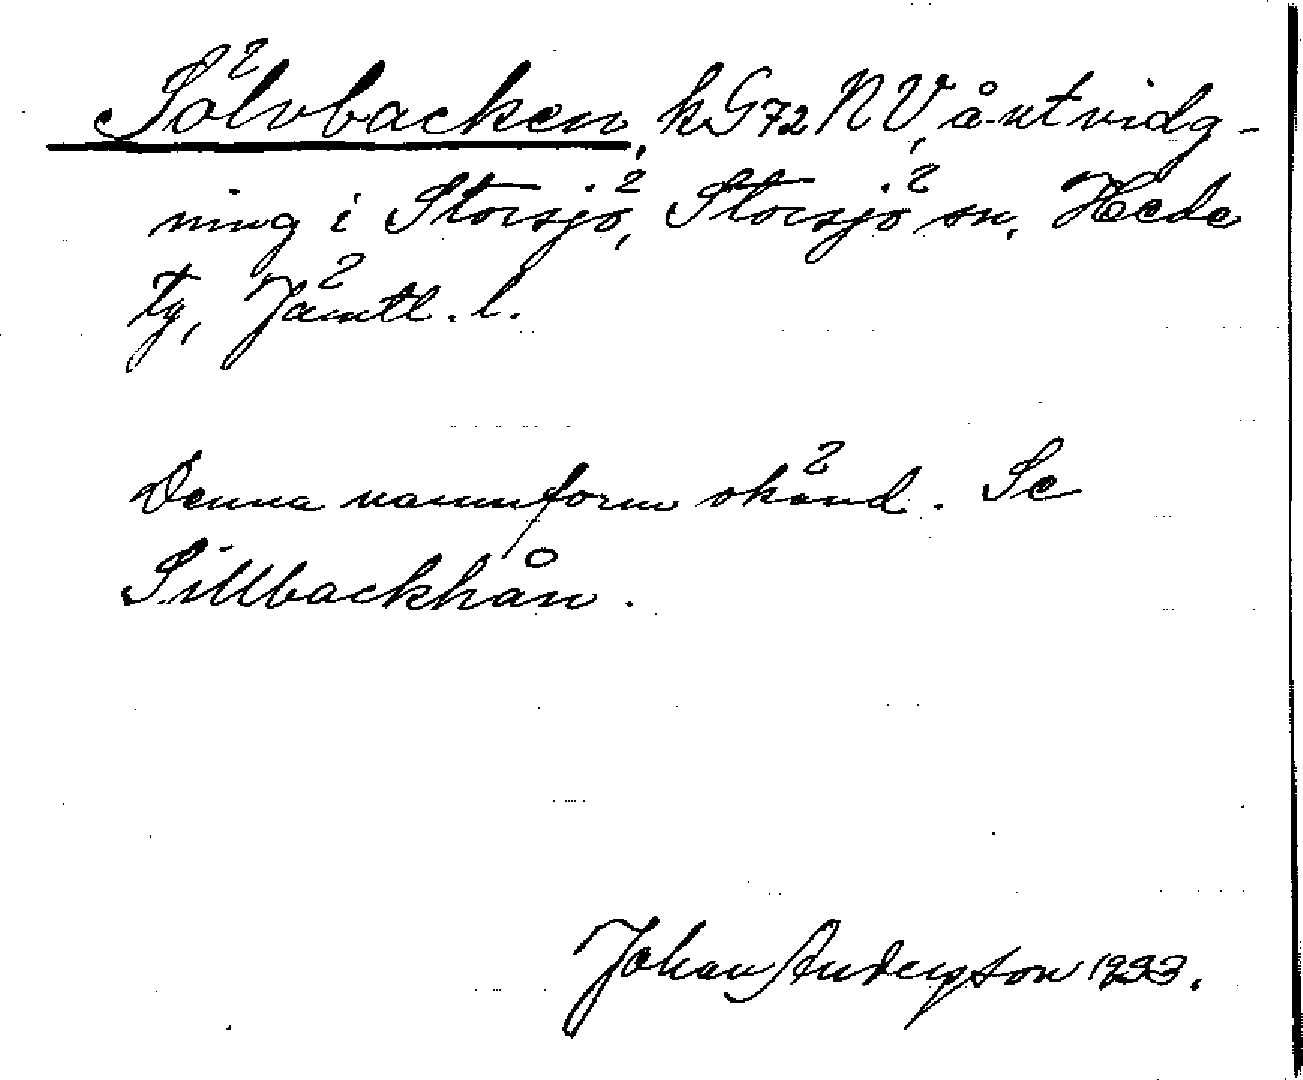 Sölvbacken, kG72NV, åutvidg-
ning i Storsjö, Storsjö sn, Hede
tg, Jämtl. l.
Denna namnform okänd. Se
Sillbackhån.
Johan Andersson 1933.